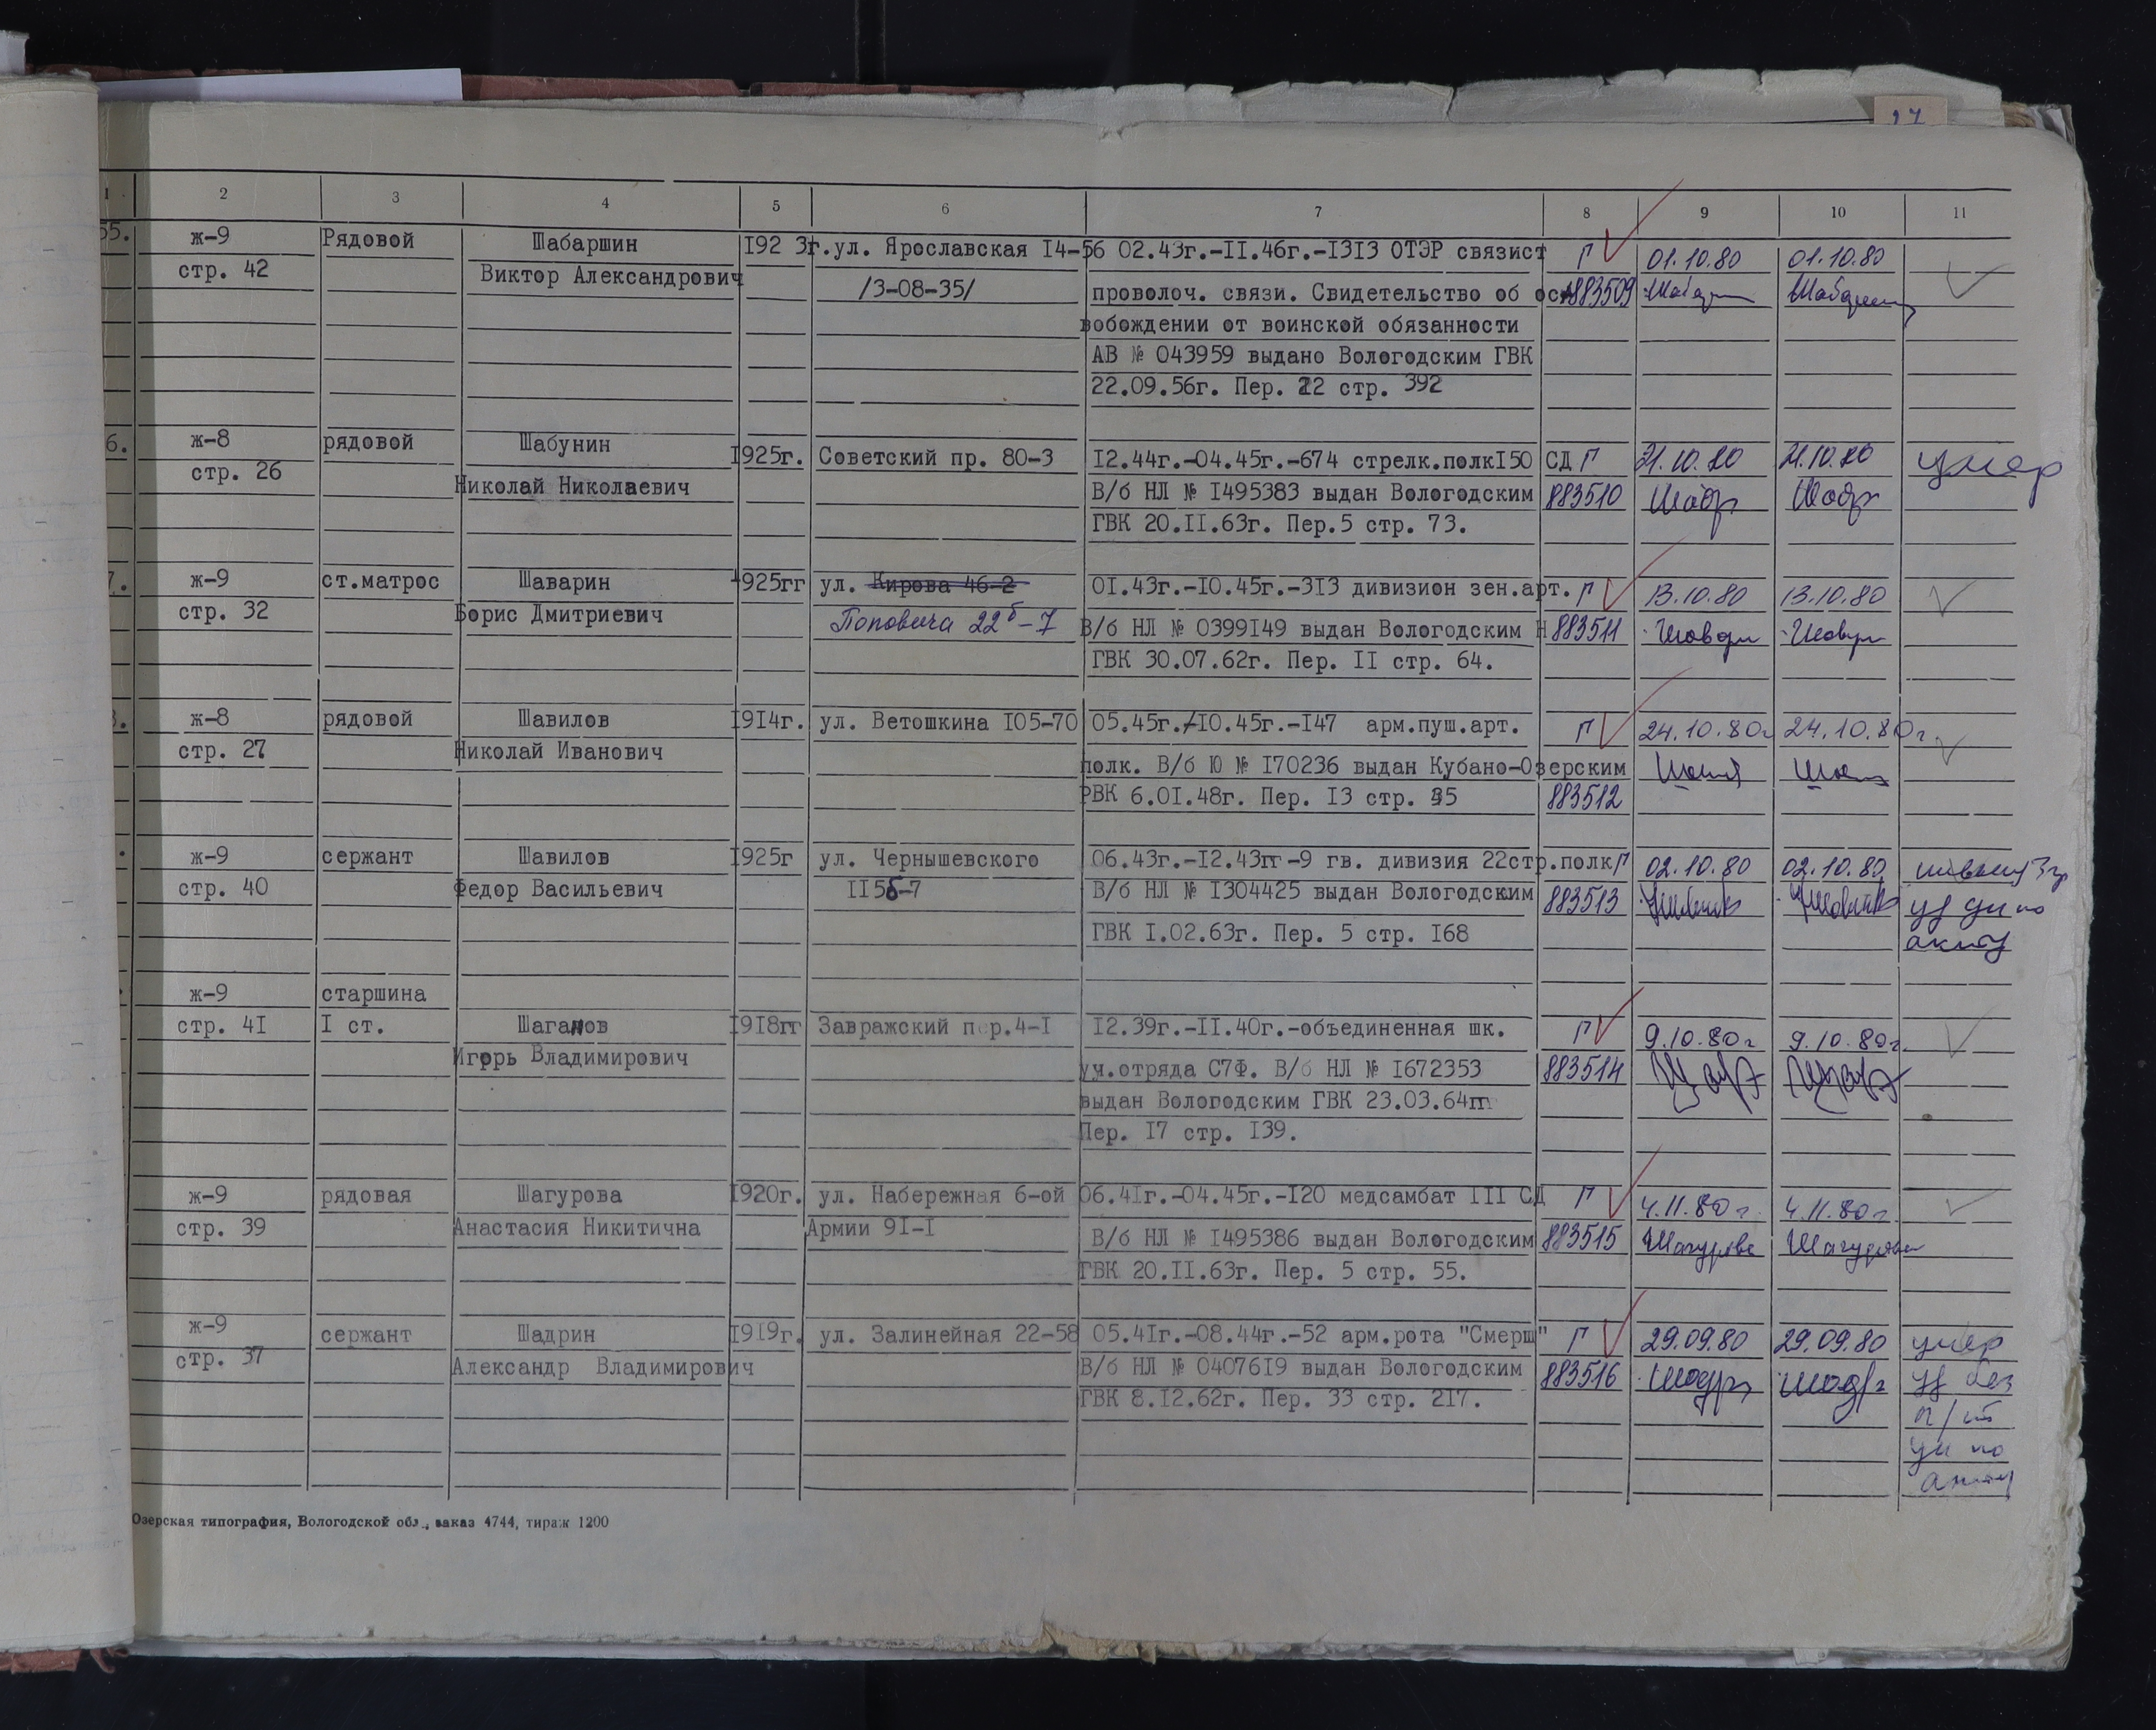 27
1 2 3 4 5 6 7 8 9 10 11
55. ж-9 Рядовой Шабаршин 1923г. ул. Ярославская 14-56 02.43г.-11.46г.-1313 ОТЭР связист Г 01.10.80 01.10.80
стр. 42 Виктор Александрович /3-08-35/ проволоч. связи. Свидетельство об ос- 883509
вобождении от воинской обязанности
АВ № 043959 выдано Вологодским ГВК
22.09.56г. Пер. 22 стр. 392
6. ж-8 рядовой Шабунин 1925г. Советский пр. 80-3 12.44г.-04.45г.-674 стрелк.полк150 СД Г 21.10.80 21.10.80 умер
стр. 26 Николай Николаевич В/б НЛ № 1495383 выдан Вологодским 883510
ГВК 20.11.63г. Пер.5 стр. 73.
7. ж-9 ст.матрос Шаварин 1925гг ул. Кирова 46-2 01.43г.-10.45г.-313 дивизион зен.арт. Г 13.10.80 13.10.80
стр. 32 Борис Дмитриевич Поповича 22б-7 В/б НЛ № 0399149 выдан Вологодским Н 883511
ГВК 30.07.62г. Пер. 11 стр. 64.
8. ж-8 рядовой Шавилов 1914г. ул. Ветошкина 105-70 05.45г.-10.45г.-147 арм.пуш.арт. Г 24.10.80г 24.10.80г
стр. 27 Николай Иванович полк. В/б Ю № 170236 выдан Кубано-Озерским
РВК 6.01.48г. Пер. 13 стр. 35 883512
ж-9 сержант Шавилов 1925г ул. Чернышевского 06.43г.-12.43гг-9 гв. дивизия 22стр.полк Г 02.10.80 02.10.80
стр. 40 Федор Васильевич 115б-7 В/б НЛ № 1304425 выдан Вологодским 883513
ГВК 1.02.63г. Пер. 5 стр. 168 акту
ж-9 старшина
стр. 41 1 ст. Шаганов 1918гг Завражский пер.4-1 12.39г.-11.40г.-объединенная шк. Г 9.10.80г 9.10.80г.
Игорь Владимирович уч.отряда С7Ф. В/б НЛ № 1672353 883514
выдан Вологодским ГВК 23.03.64гг
Пер. 17 стр. 139.
ж-9 рядовая Шагурова 1920г. ул. Набережная 6-ой 06.41г.-04.45г.-120 медсамбат 111 СД Г 4.11.80г. 4.11.80г.
стр. 39 Анастасия Никитична Армии 91-1 В/б НЛ № 1495386 выдан Вологодским 883515 Шагурова Шагурова
ГВК 20.11.63г. Пер. 5 стр. 55.
ж-9 сержант Шадрин 1919г. ул. Залинейная 22-58 05.41г.-08.44г.-52 арм.рота "Смерш" Г 29.09.80 29.09.80 умер
стр. 37 Александр Владимирович В/б НЛ № 0407619 выдан Вологодским 883516 без
ГВК 8.12.62г. Пер. 33 стр. 217.
по
акту
Озерская типография, Вологодской обл., заказ 4744, тираж 1200